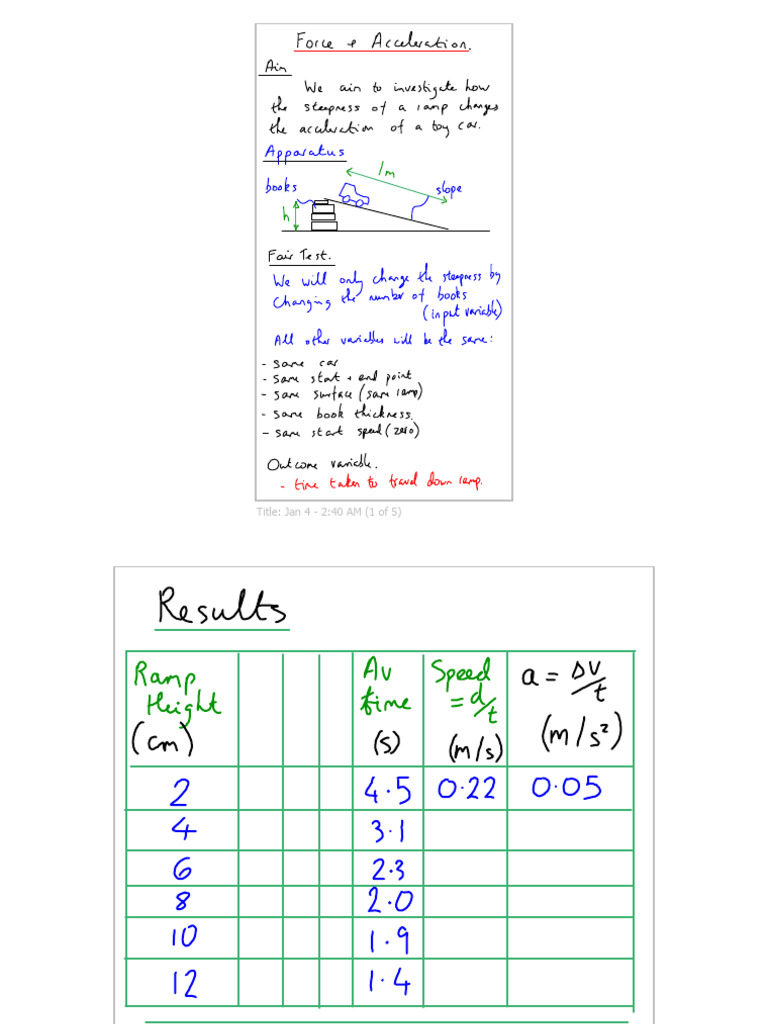 Force & Acceleration.
Aim
We aim to investigate how
the steepness of a ramp changes
the acceleration of a toy car.
Apparatus
1m
books
slope
h
Fair Test.
We will only change the steepness by
changing the number of books
(input variable)
All other variables will be the same:
- same car
- same start + end point
- same surface (same ramp)
- same book thickness.
- same start speed (zero)
Outcome variable.
- time taken to travel down ramp.
Title: Jan 4 - 2:40 AM (1 of 5)
Results
Ramp Height (cm) Av time (s) Speed = d/t (m/s) a = Δv/t (m/s²)
2 4.5 0.22 0.05
4 3.1
6 2.3
8 2.0
10 1.9
12 1.4